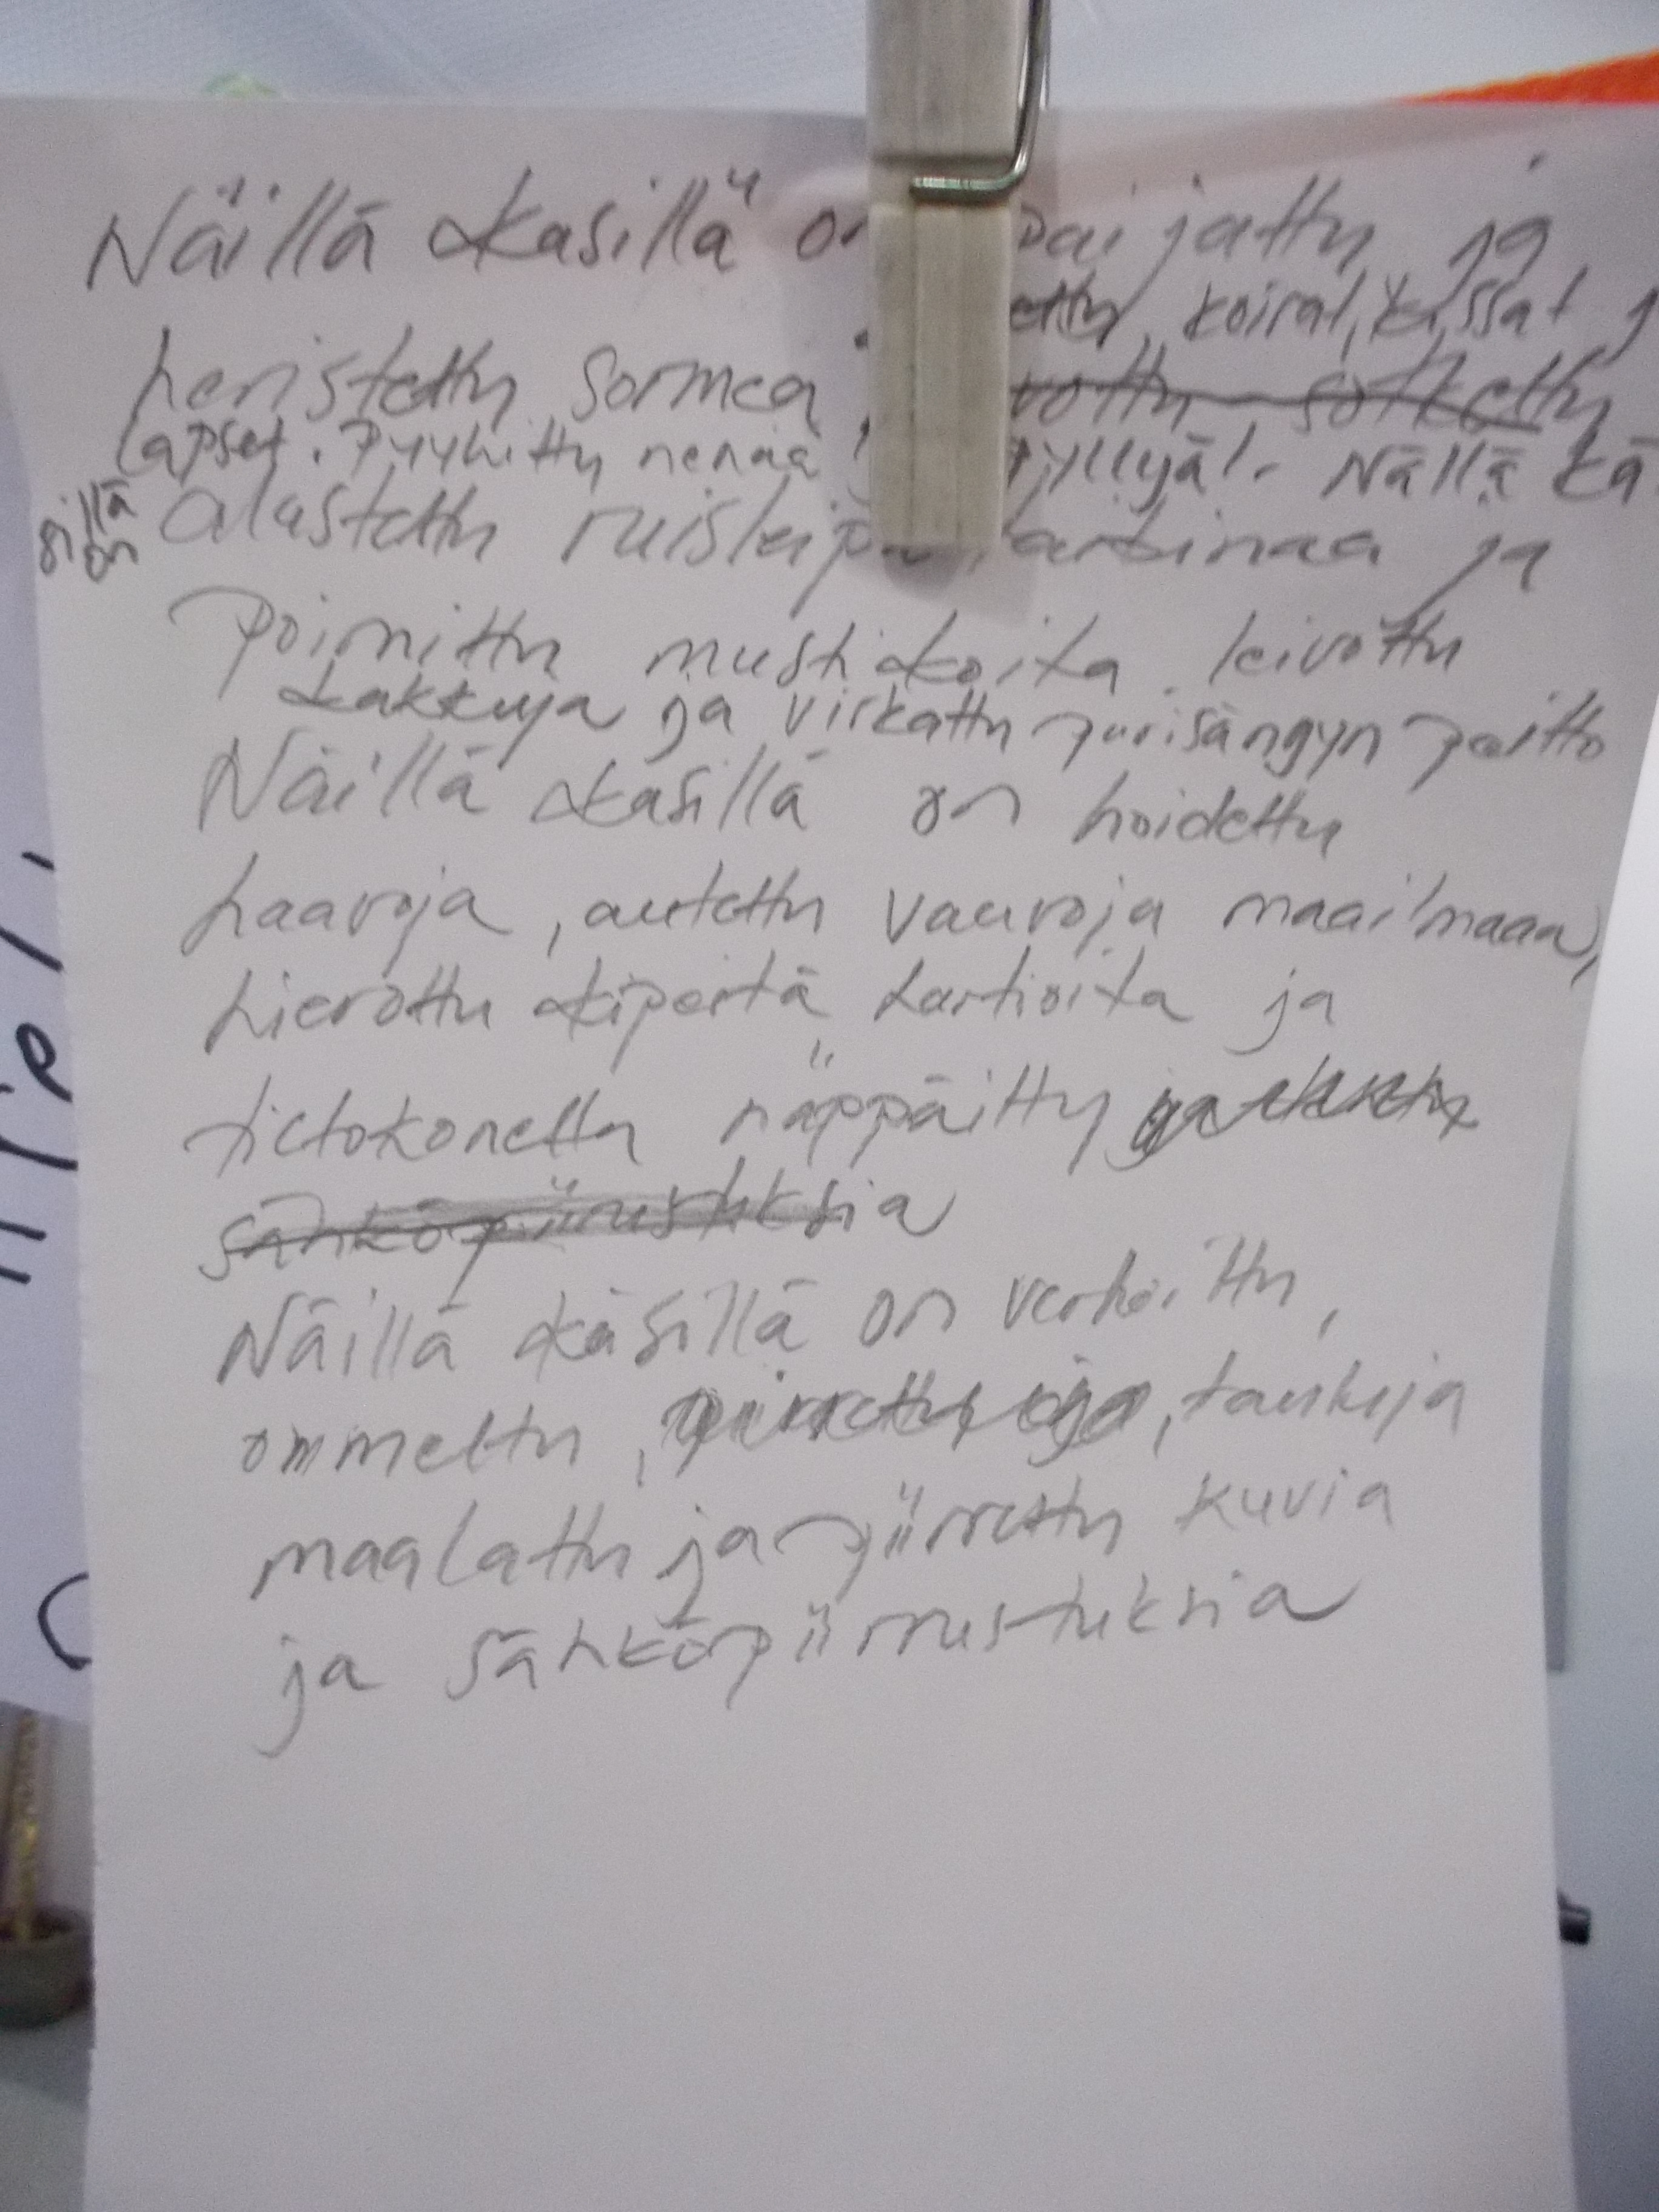 Näillä käsillä on paijattu ja
koirat, kissat
heristetty sormea
lapset. Pyyhitty nenää pyllyjä!. Nällä kä
sillä on alustettu ruisleipä taikinaa ja
Poimittu mustikoita leivottu
kakkuja ja virkattu parisängyn peitto
Näillä käsillä on hoidettu
haavoja, autettu vauvoja maailmaan,
hierottu kipeitä hartioita ja
tietokonetta näppäitty
sähköpiirustuksia
Näillä käsillä on verhoittu,
ommeltu, piirretty ja, tauluja
maalattu ja piirretty kuvia
ja sähköpiirrustuksia